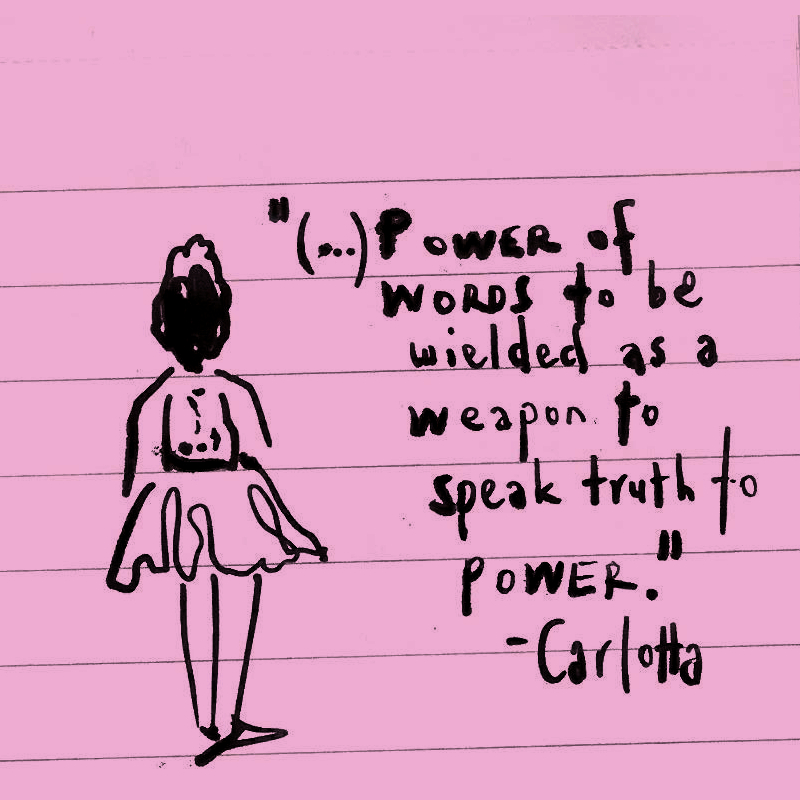 "(...) POWER of
WORDS to be
wielded as a
weapon to
speak truth to
POWER."
-Carlotta